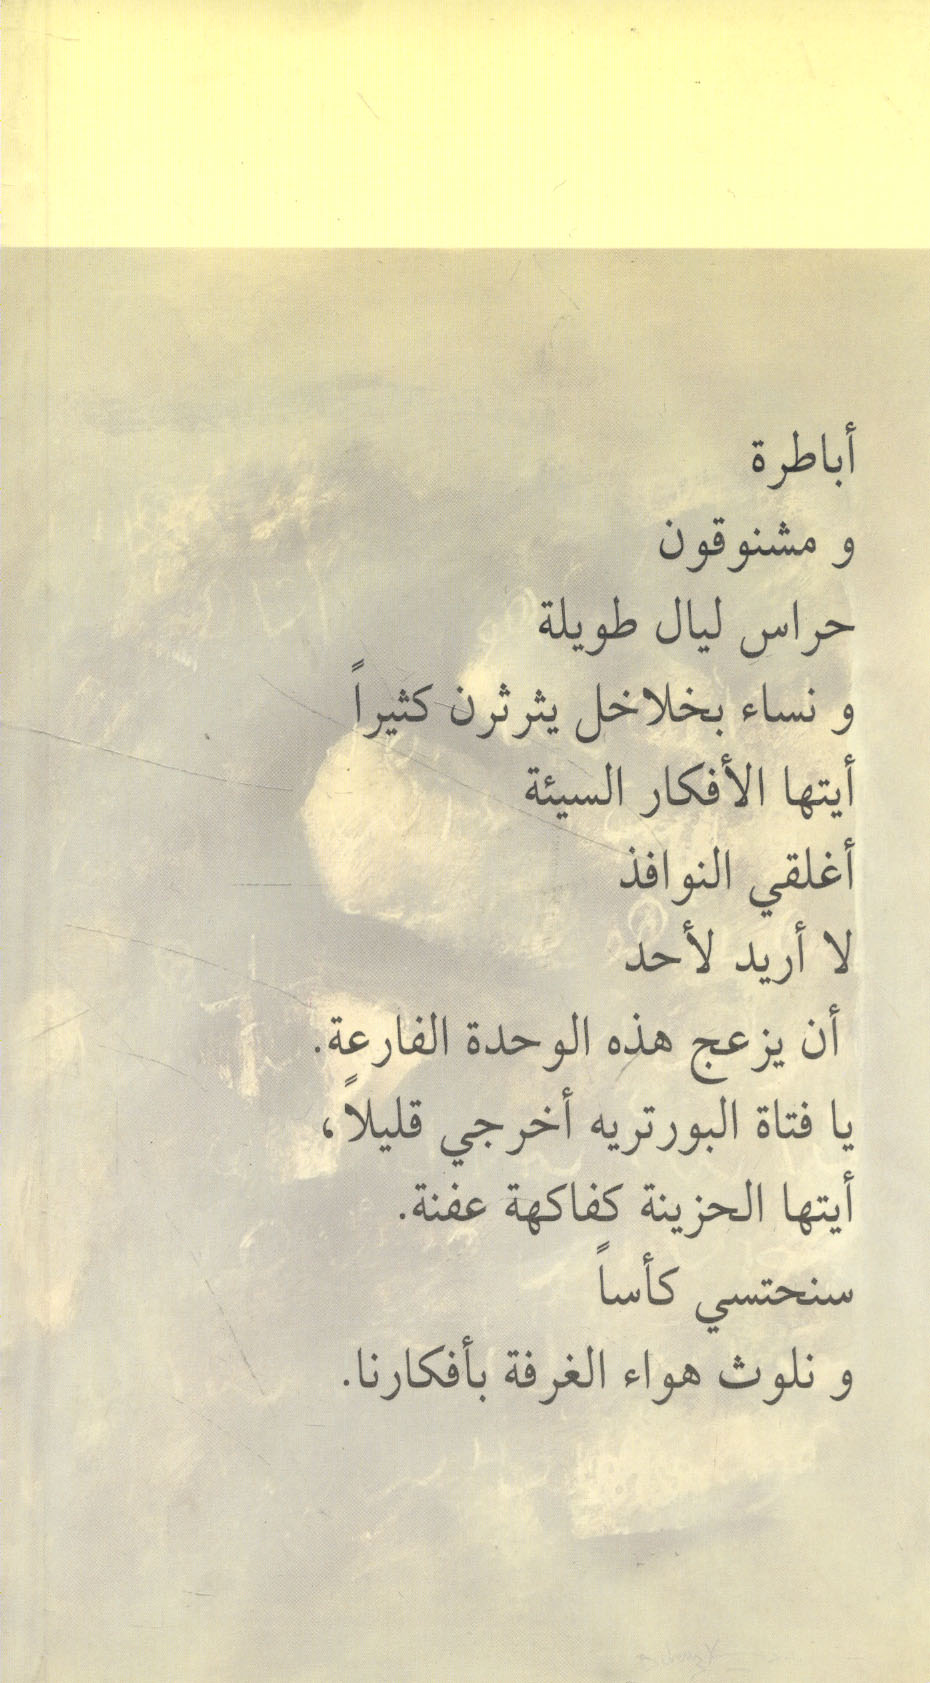 أباطرة
و مشنوقون
حراس ليال طويلة
و نساء بخلاخل يثرثرن كثيراً
أيتها الأفكار السيئة
أغلقي النوافذ
لا أريد لأحد
أن يزعج هذه الوحدة الفارعة.
يا فتاة البورتريه أخرجي قليلاً،
أيتها الحزينة كفاكهة عفنة.
سنحتسي كأساً
و نلوث هواء الغرفة بأفكارنا.